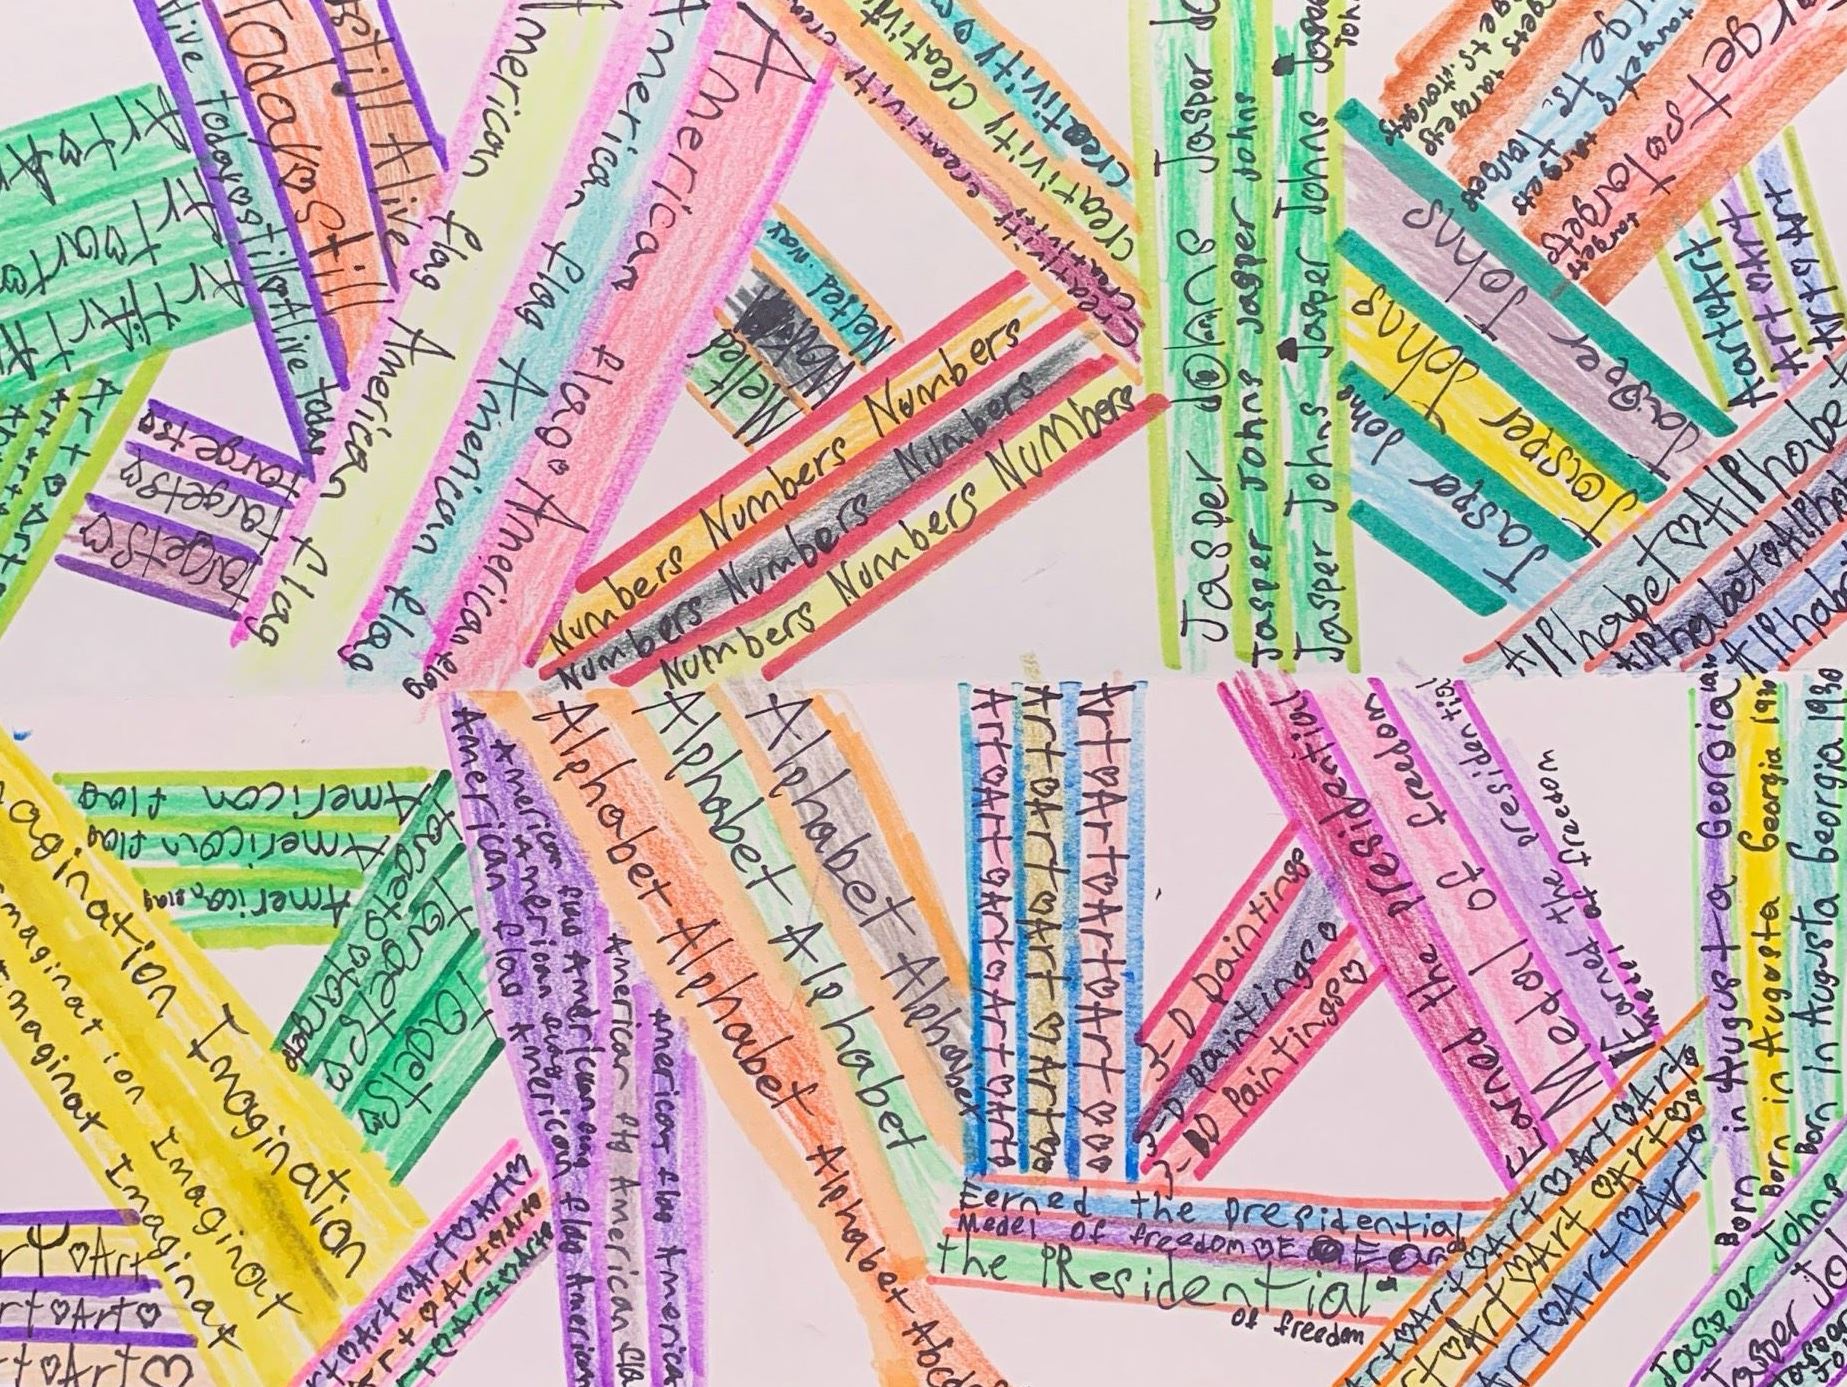 Art♡A
Art♡art♡
Art♡Art
Alive Today♡still♡Alive Today
Today♡still
still Alive
targets♡
targets♡
targets♡
American flag American flag
American flag American flag
American flag♡ American flag
Creativity
Creativity Creativity
creativity creativity creativity
Melted
Melted
Numbers Numbers Numbers
Numbers Numbers Numbers
Numbers Numbers Numbers
Jasper Johns Jasper Jo
Jasper Johns Jasper Johns
Jasper Johns Jasper Johns Jaso
Jasper Johns
Jasper Johns
Jasper Johns
targets targets
targets
Art♡Art
Art♡Art
Alphabet♡Alphabe
Alphabet♡Alph
Alphab
American flag
American flag
American flag
targets♡targets
Targets♡
Tagets♡
agination Imagination
Imagination Imaginat
Imaginat Imaginat
rt♡Art
rt♡Art♡
t♡Art♡
rt♡Art♡Art♡Art♡
American flag American
American flag American flag American
American flag American fla
American flag America
Alphabet Alphabet Alphabet Abcde
Alphabet Alphabet
Alphabet Alphabet
Art♡Art♡Art♡Art♡Art♡
Art♡Art♡Art♡Art♡
Art♡Art♡Art♡Art♡♡♡
3-D Paintings
3-D paintings♡
3-D Paintings♡
Earned the presidential
Medal of freedom
Earned the presidential
Medal of freedom
Eerned the presidential
Medel of freedom♡E
the PResidential
of freedom
Art♡Art♡Art♡Art♡Art♡
rt♡Art♡Art♡Art♡
rt♡Art♡Art♡Art
Born in Augusta Georgia
Born in Augusta Georgia 19
Born in Augusta Georgia 1930
Jasper Johns
Jasper Jo